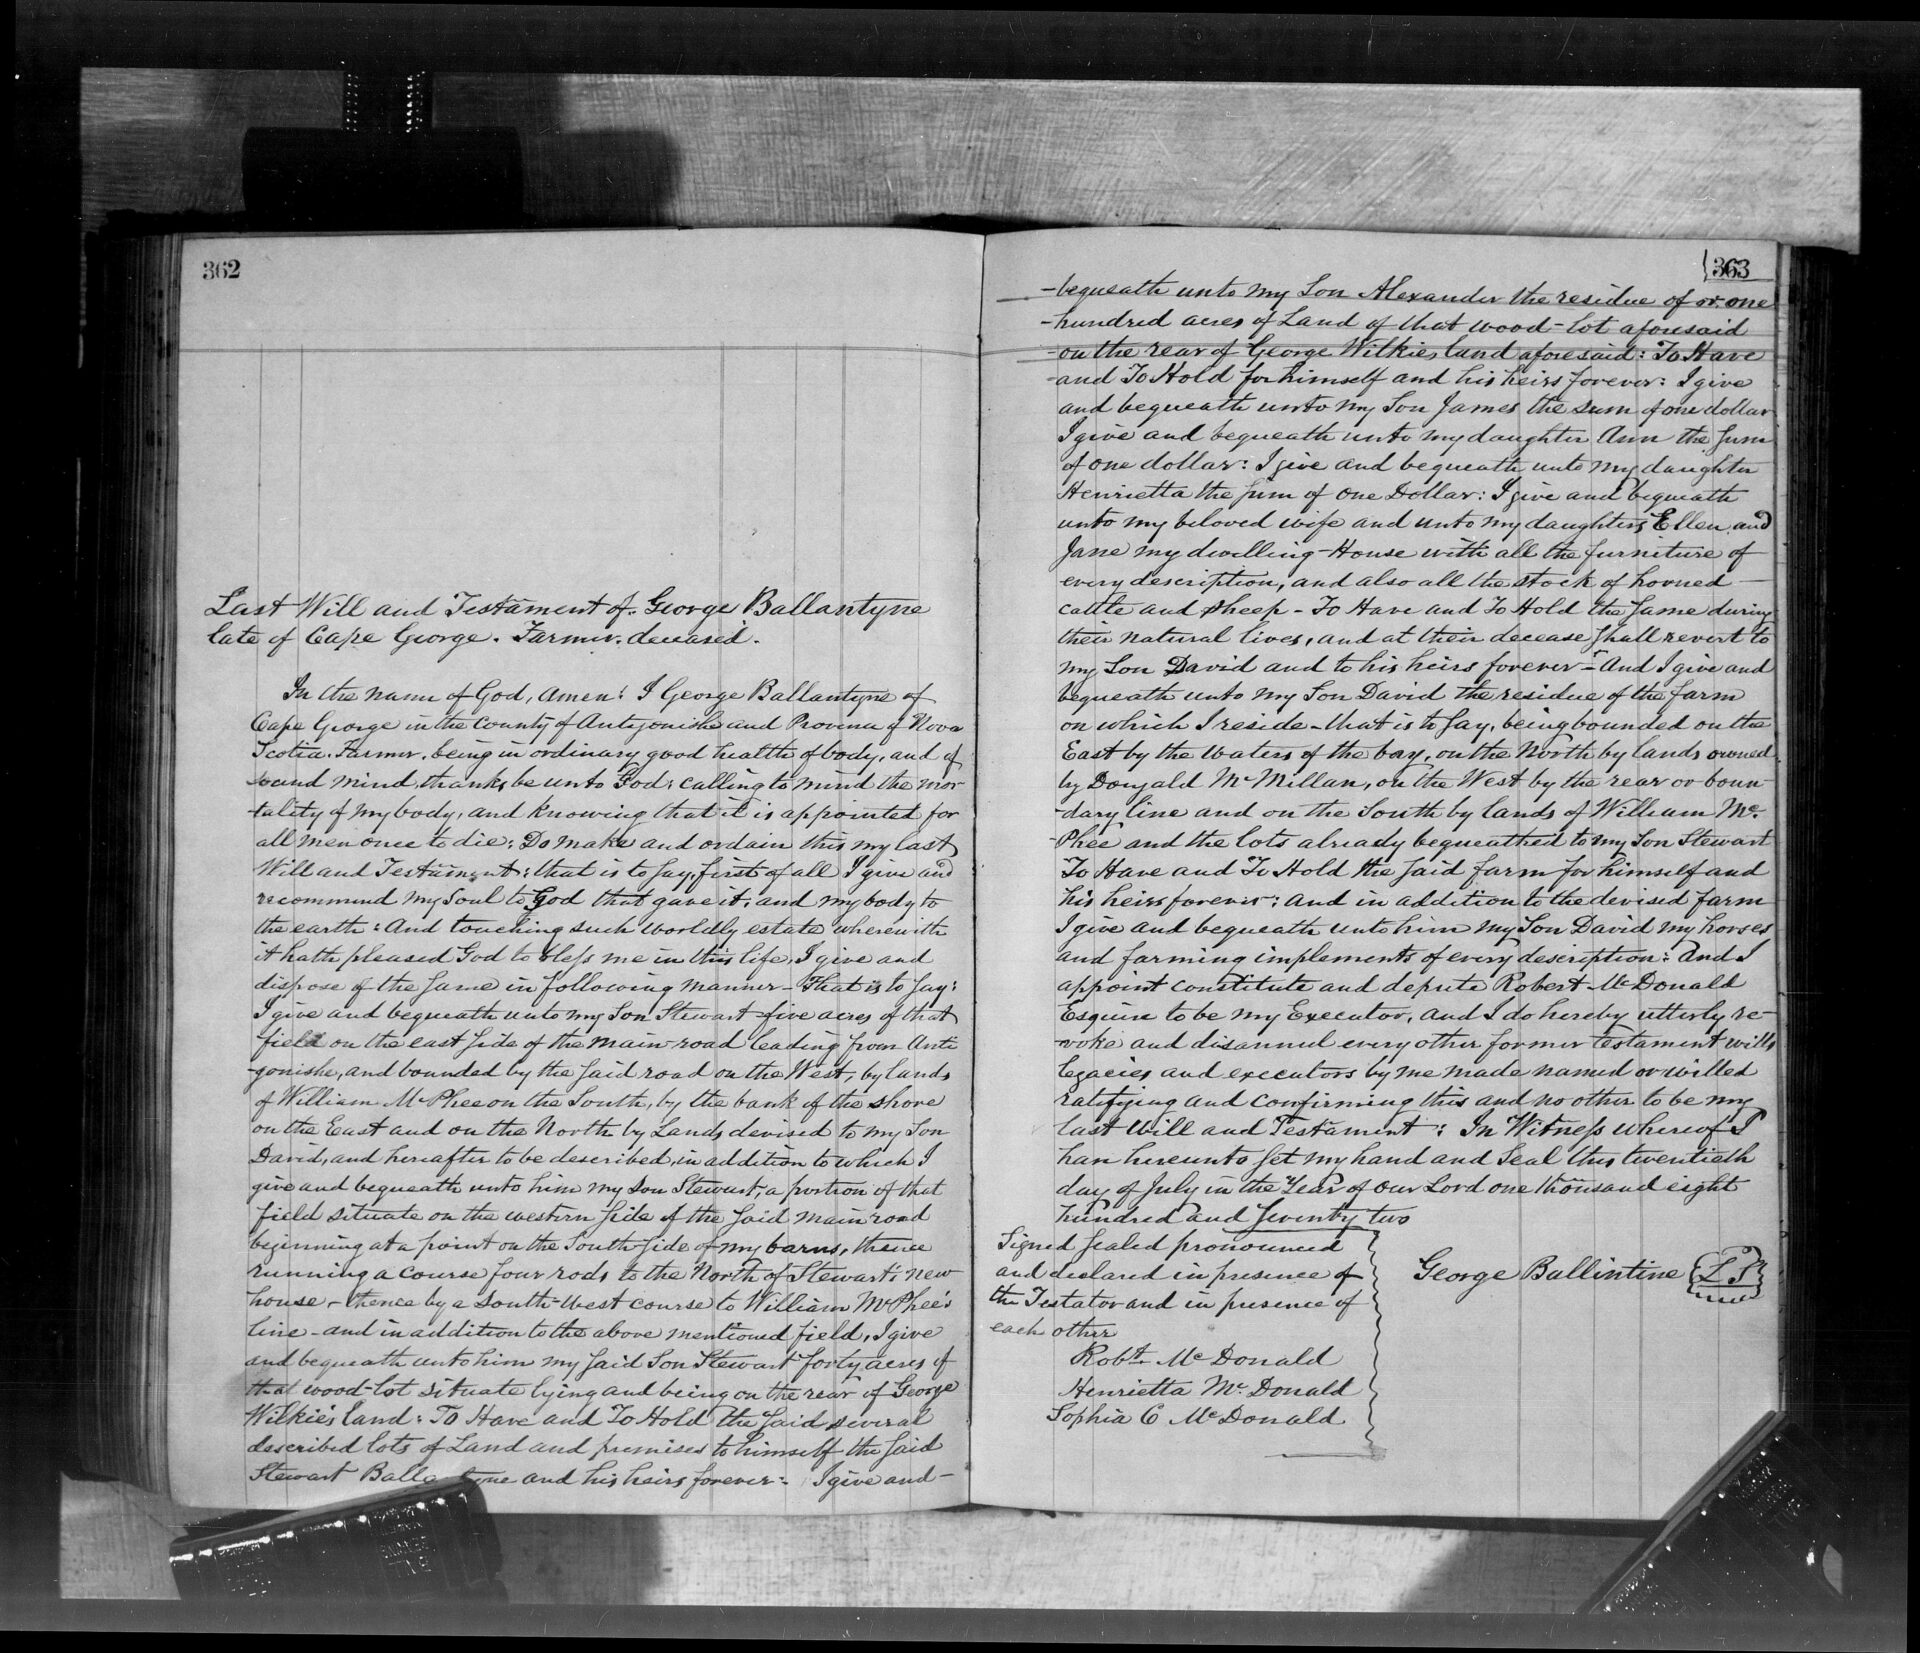 362
Last Will and Testament of George Ballantyne
late of Cape George. Farmer. deceased.
In the name of God, Amen: I George Ballantyne of
Cape George in the County of Antigonishe and Province of Nova
Scotia. Farmer. being in ordinary good health of body, and of
sound mind, thanks be unto God: calling to mind the mor-
-tality of my body, and knowing that it is appointed for
all men once to die: Do make and ordain this my last
Will and Testament: that is to say, first of all I give and
recommend my Soul to God that gave it: and my body to
the earth: And touching such worldly estate wherewith
it hath pleased God to bless me in this life, I give and
dispose of the same in following manner - That is to say:
I give and bequeath unto my Son Stewart five acres of that
field on the east side of the main-road leading from Anti
-gonishe, and bounded by the said road on the West, by lands
of William McPhee on the South, by the bank of the shore
on the East and on the North by Lands devised to my Son
David, and hereafter to be described, in addition to which I
give and bequeath unto him my son Stewart, a portion of that
field situate on the western side of the said main road
beginning at a point on the South side of my barns, thence
running a course four rods to the North of Stewart's new
house - thence by a South-West course to William McPhee's
line - and in addition to the above mentioned field, I give
and bequeath unto him my said Son Stewart forty acres of
that wood-lot situate lying and being on the rear of George
Wilkie's land: To Have and To Hold the said several
described lots of Land and premises to himself the said
Stewart Balla tyne and his heirs forever: I give and -
363
-bequeath unto my Son Alexander the residue of or one
-hundred acres of Land of that wood-lot aforesaid
-on the rear of George Wilkies land aforesaid: To Have
-and To Hold for himself and his heirs forever: I give
and bequeath unto my Son James the sum of one dollar
I give and bequeath unto my daughter Ann the sum
of one dollar: I give and bequeath unto my daughter
Henrietta the sum of one Dollar: I give and bequeath
unto my beloved wife and unto my daughters Ellen and
Jane my dwelling-House with all the furniture of
every description, and also all the stock of horned
cattle and sheep - To Have and To Hold the same during
their natural lives, and at their decease shall revert to
my Son David and to his heirs forever - And I give and
bequeath unto my Son David the residue of the farm
on which I reside - that is to say, being bounded on the
East by the waters of the bay, on the North by lands owned
by Dougald McMillan, on the West by the rear or boun-
-dary line and on the South by lands of William Mc.
-Phee and the lots already bequeathed to my Son Stewart
To Have and To Hold the said farm for himself and
his heirs forever: and in addition to the devised farm
I give and bequeath unto him my Son David my horses
and farming implements of every description: And I
appoint constitute and depute Robert McDonald
Esquire to be my Executor, and I do hereby utterly re-
-voke and disannul every other former testament wills
legacies and executors by me made named or willed
ratifying and confirming this and no other to be my
last Will and Testament: In Witness whereof I
han hereunto set my hand and Seal this twentieth
day of July in the Year of our Lord one thousand eight
hundred and seventy two
Signed sealed pronounced
and declared in presence of
the Testator and in presence of
each other
George Ballintine L S
Robt. McDonald
Henrietta McDonald
Sophia C McDonald